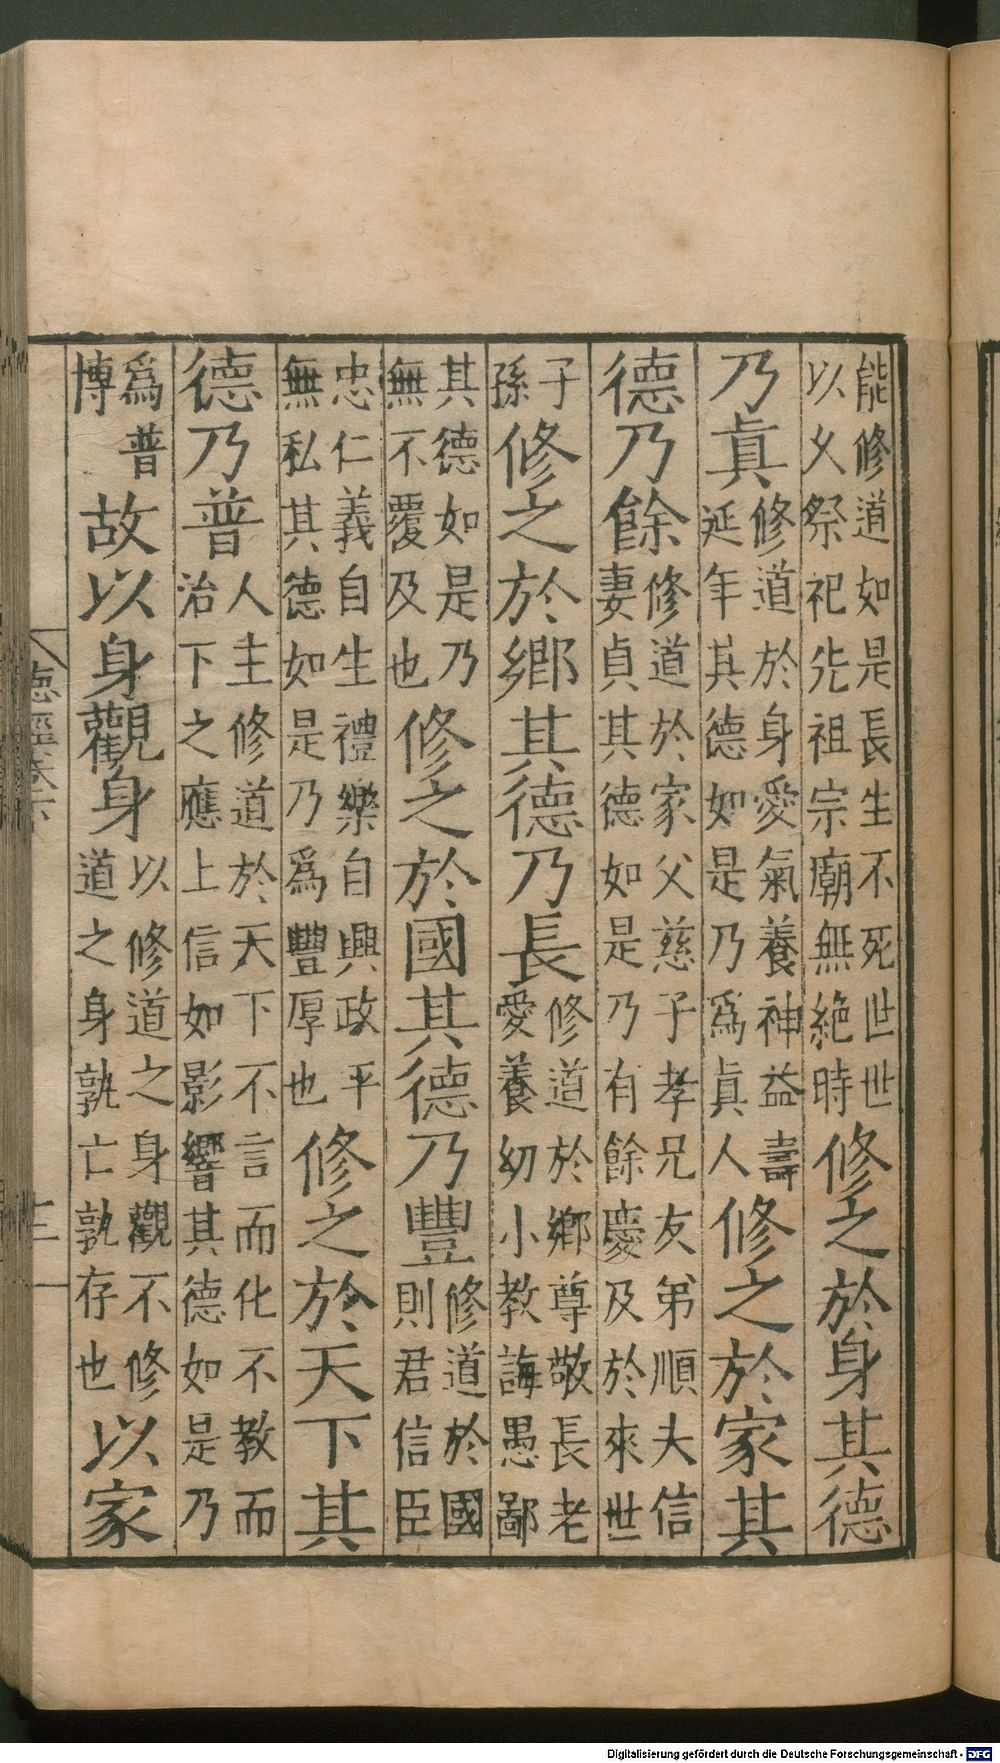 能修道如是長生不死世世以久祭祀先祖宗廟無絶時修之於身其德
乃眞修道於身愛氣養神益壽延年其德如是乃爲眞人修之於家其
德乃餘修道於家父慈子孝兄友弟順夫信妻貞其德如是乃有餘慶及於來世
子孫修之於鄉其德乃長修道於鄉尊敬長老愛養幼小教誨愚鄙
其德如是乃無不覆及也修之於國其德乃豐修道於國則君信臣
忠仁義自生禮樂自興政平無私其德如是乃爲豐厚也修之於天下其
德乃普人主修道於天下不言而化不教而治下之應上信如影響其德如是乃
爲普博故以身觀身以修道之身觀不修道之身孰亡孰存也以家
德經
二
Digitalisierung gefördert durch die Deutsche Forschungsgemeinschaft - DFG